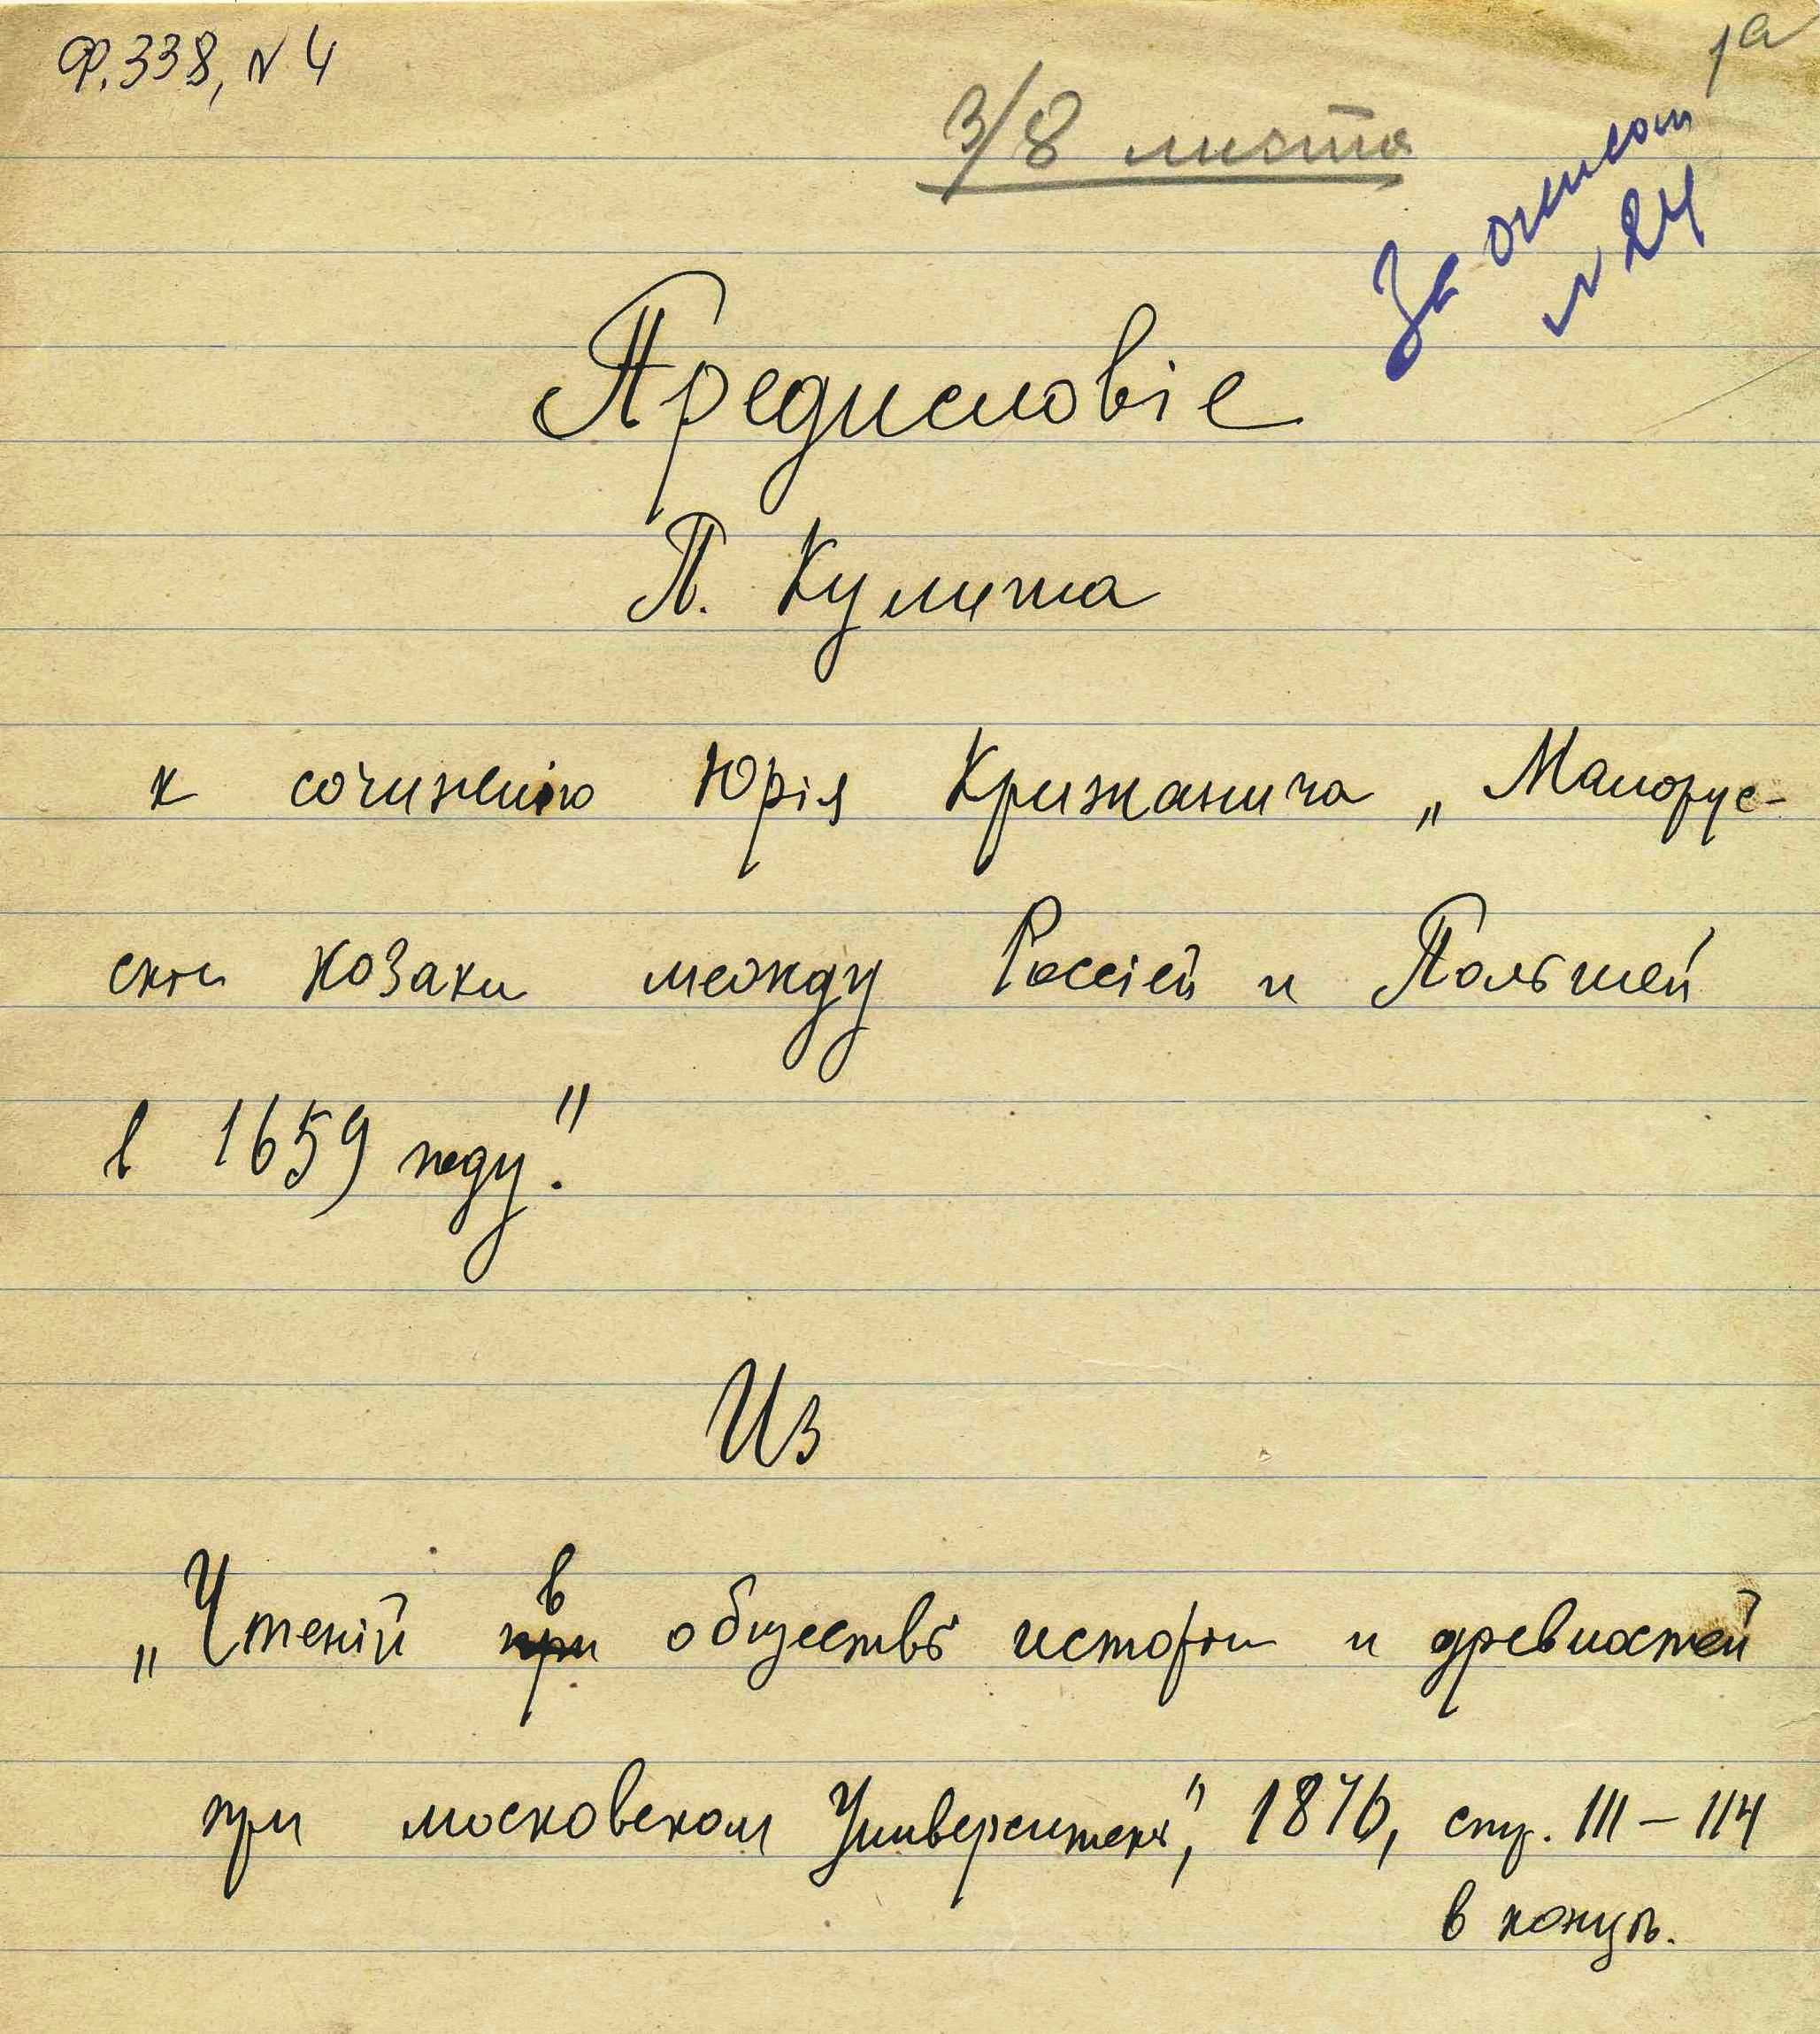 Ф. 338, N 4
1а
3/8 листа
За описом
N 24
Предисловіе
П. Кулиша
к сочиненію Юрія Крижанича „Малорус-
скіи козаки между Россіей и Польшей
в 1659 году."
Из
„Чтеній при в обществѣ исторіи и древностей
при московском Университетѣ", 1876, стр. 111 – 114
в концѣ.